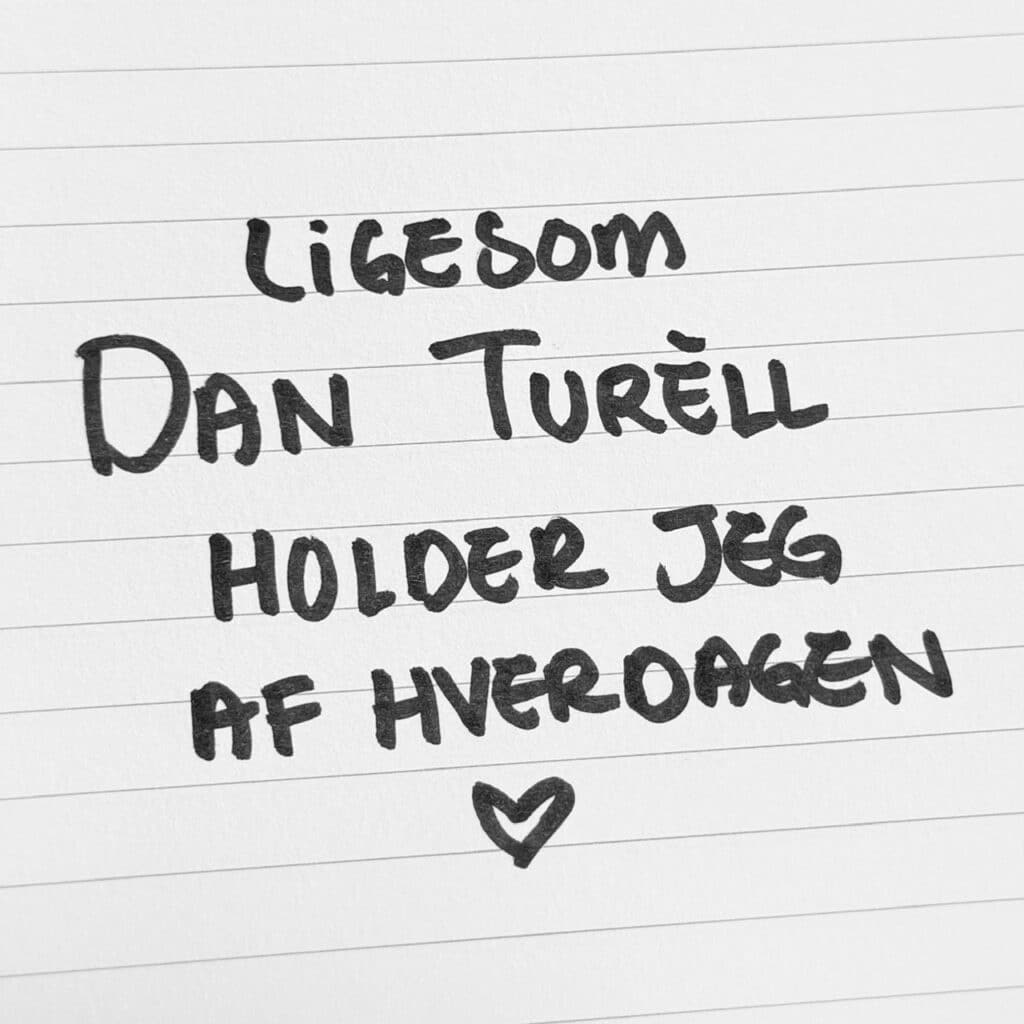 LiGESOM
DAN TURÈLL
HOLDER JEG
AF HVERDAGEN